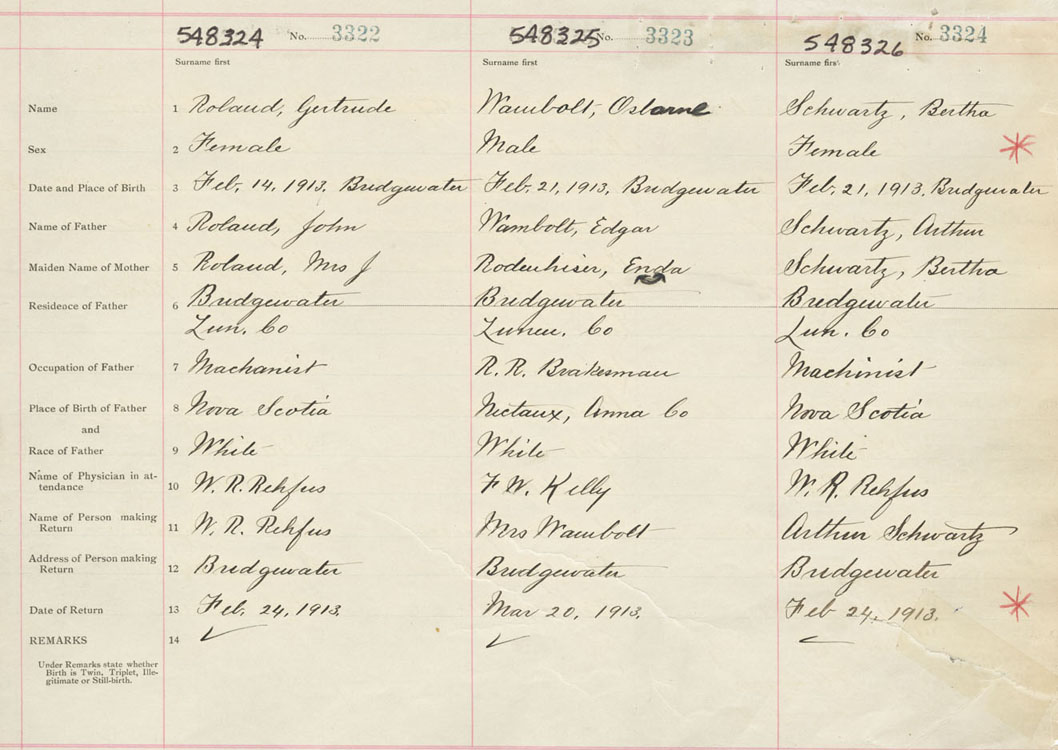 548324 No. 3322 548325 No. 3323 548326 No. 3324
Surname first Surname first Surname first
Name 1 Roland, Gertrude Wambolt, Osborne Schwartz, Bertha
Sex 2 Female Male Female
Date and Place of Birth 3 Feb, 14, 1913. Bridgewater Feb. 21, 1913, Bridgewater Feb. 21, 1913, Bridgewater
Name of Father 4 Roland, John Wambolt, Edgar Schwartz, Arthur
Maiden Name of Mother 5 Roland, Mrs J Rodenhiser, Enda Schwartz, Bertha
Residence of Father 6 Bridgewater Bridgewater Bridgewater
Lun. Co Lunen. Co Lun. Co
Occupation of Father 7 Machanist R. R. Brakesman Machinist
Place of Birth of Father 8 Nova Scotia Nictaux, Anna Co Nova Scotia
and
Race of Father 9 White White White
Name of Physician in at-
tendance 10 W. R. Rehfus F W. Kelly W. R. Rehfus
Name of Person making
Return 11 W. R. Rehfus Mrs Wambolt Arthur Schwartz
Address of Person making
Return 12 Bridgewater Bridgewater Bridgewater
Date of Return 13 Feb. 24, 1913. Mar 20, 1913. Feb 24, 1913.
REMARKS 14
Under Remarks state whether
Birth is Twin, Triplet, Ille-
gitimate or Still-birth.